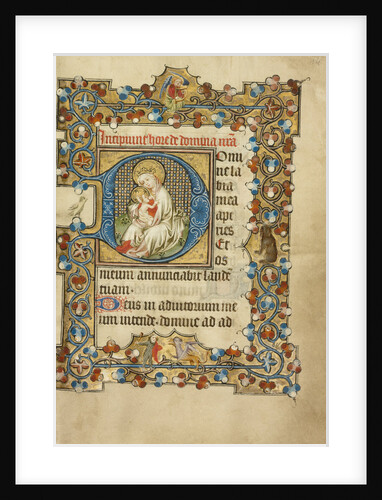 Incipiunt hore de domina nr̄a
Domi
ne la
bia
mea
ape
ries
Et
os
meum annunciabit laude
tuam.
Deus in adiutorium me
um intende. domine ad ad